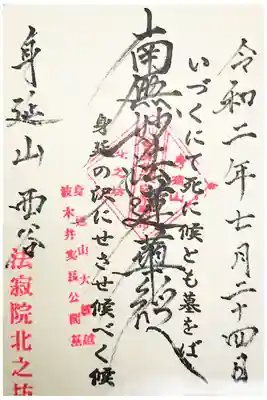 令和二年七月二十四日
いづくにて死に候とも墓をば
南無妙法蓮華経
身延の沢にせさせ候べく候
身延山大檀越
波木井実長公開基
身延山 西谷
法寂院北之坊